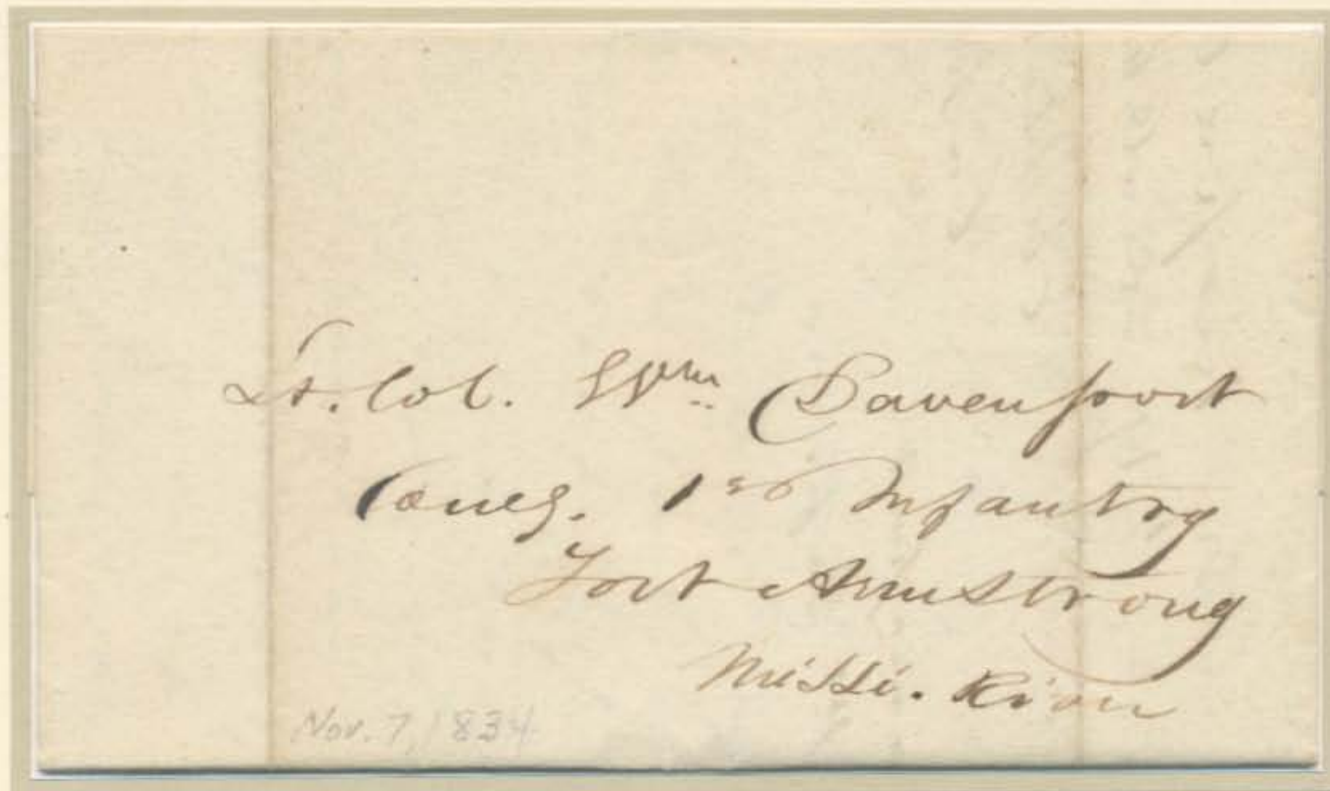 Lt. Col. Wm. Davenport
Comg. 1st Infantry
Fort Armstrong
Missi. River
Nov. 7, 1834